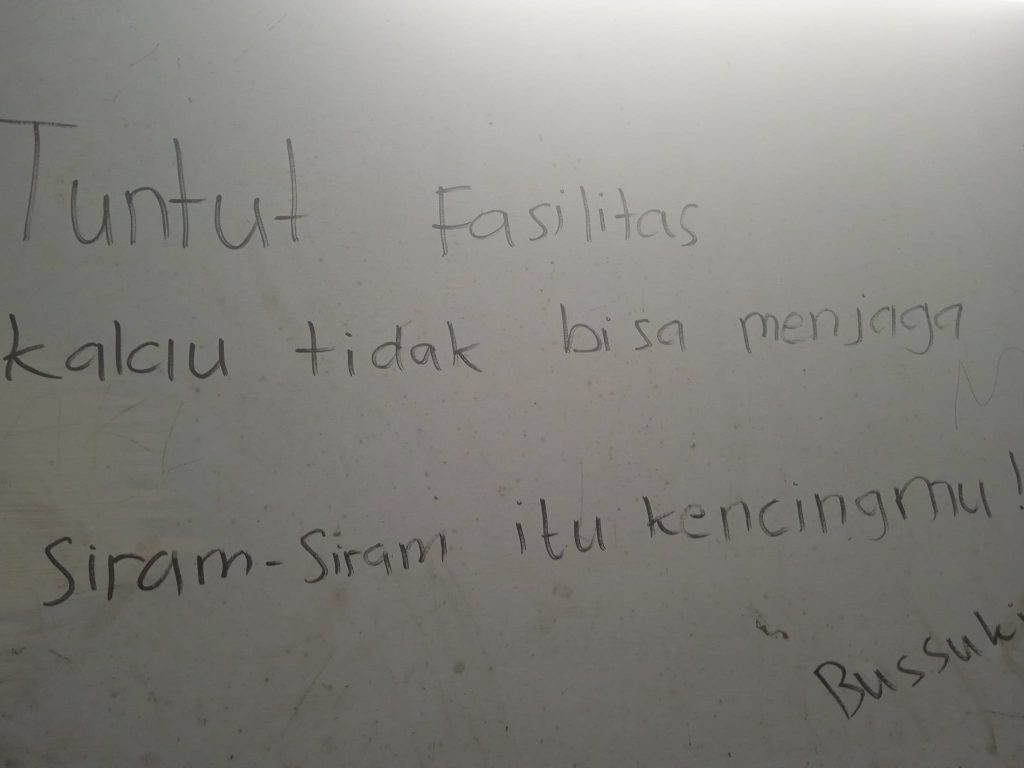 Tuntut Fasilitas
kalau tidak bisa menjaga
Siram-Siram itu kencingmu!
Bussuki